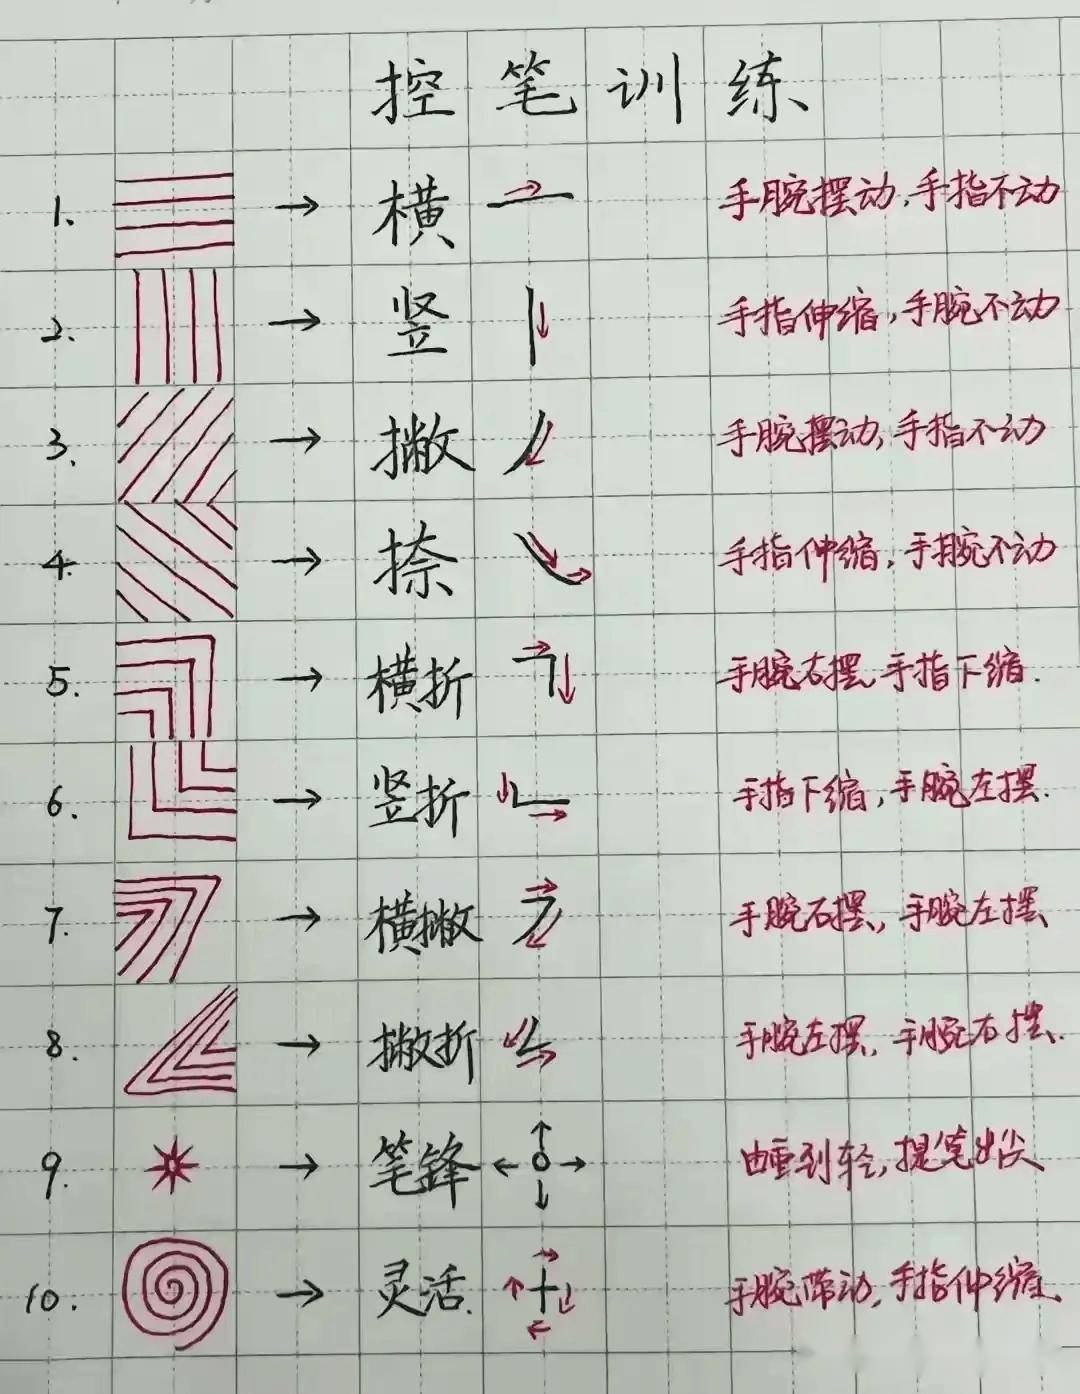 控笔训练
1. → 横 手腕摆动,手指不动
2. → 竖 手指伸缩,手腕不动
3. → 撇 手腕摆动,手指不动
4. → 捺 手指伸缩,手腕不动
5. → 横折 手腕右摆 手指下缩.
6. → 竖折 手指下缩,手腕左摆.
7. → 横撇 手腕右摆,手腕左摆
8. → 撇折 手腕左摆,手腕右摆.
9. → 笔锋 由重到轻,提笔出尖
10. → 灵活. 手腕带动,手指伸缩.